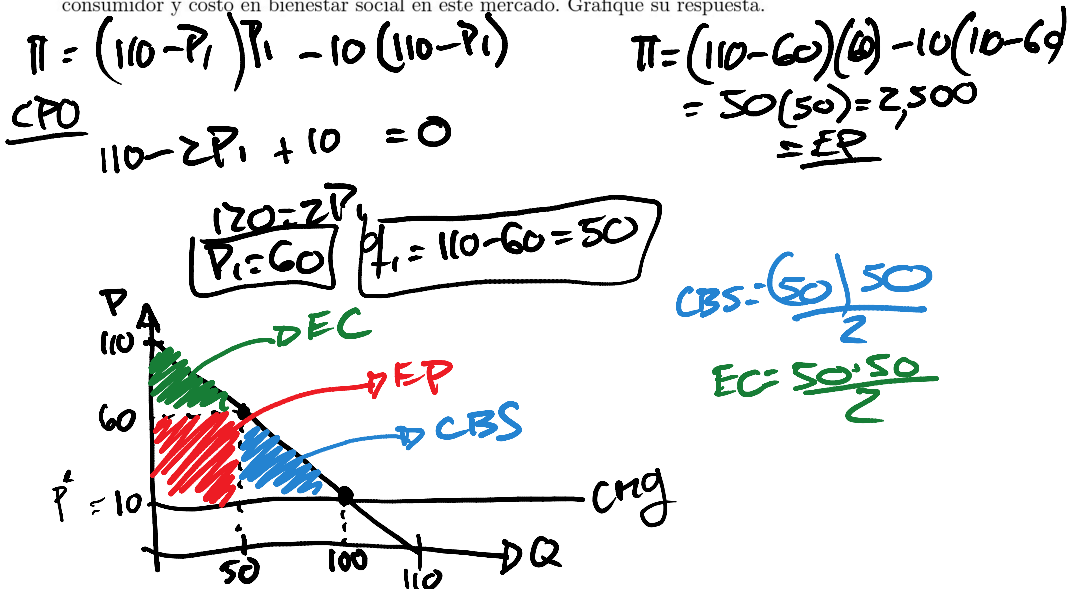 consumidor y costo en bienestar social en este mercado. Grafique su respuesta.
π = (110-P₁)P₁ - 10(110-P₁)
CPO
110-2P₁ + 10 = 0
120=2P₁
P₁=60
q₁=110-60=50
π=(110-60)(60)-10(110-60)
= 50(50)=2,500
= EP
CBS=(50)50/2
EC=50·50/2
P
110
EC
EP
60
CBS
= 10
CMg
50
100
110
Q